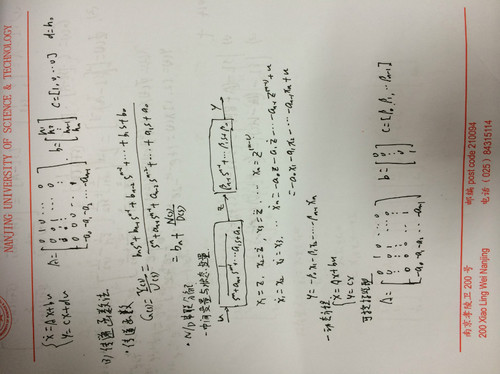 NANJING UNIVERSITY OF SCIENCE & TECHNOLOGY
ẋ = Ax+bu
y = cx+du
A = [0 1 0 ... 0; 0 0 1 ... 0; 0 0 0 ... 1; -a₀ -a₁ -a₂ ... -aₙ₋₁] b = [h₁; h₂; ⋮; hₙ₋₁; hₙ] c = [1, 0, ... 0] d = h₀
传递函数法
· 传递函数
G(s) = Y(s)/U(s) = (bₙsⁿ + bₙ₋₁sⁿ⁻¹ + bₙ₋₂sⁿ⁻² + ... + b₁s + b₀)/(sⁿ + aₙ₋₁sⁿ⁻¹ + aₙ₋₂sⁿ⁻² + ... + a₁s + a₀)
= bₙ + N(s)/D(s)
· N/D串联分解
- 中间变量与状态变量
u → 1/(sⁿ + aₙ₋₁sⁿ⁻¹ + ... a₁s + a₀) → z → βₙ₋₁sⁿ⁻¹ + ... β₁s + β₀ → y
x₁ = z, x₂ = ż, x₃ = z̈ ... xₙ = z⁽ⁿ⁻¹⁾
ẋ₁ = x₂ ẋ₂ = x₃ ... ẋₙ = -a₀z - a₁ż - ... - aₙ₋₁z⁽ⁿ⁻¹⁾ + u
= -a₀x₁ - a₁x₂ - ... - aₙ₋₁xₙ + u
y = -β₀x₁ - β₁x₂ - ... - βₙ₋₁xₙ
- 动态方程
ẋ = Ax+bu
y = cx
可控标准型
A = [0 1 0 ... 0; 0 0 1 ... 0; ⋮; 0 0 0 ... 1; -a₀ -a₁ -a₂ ... -aₙ₋₁] b = [0; 0; ⋮; 0; 1] c = [β₀, β₁, ... βₙ₋₁]
南京孝陵卫 200 号 邮编 post code 210094
200 Xiao Ling Wei Nanjing 电话 (025) 84315114